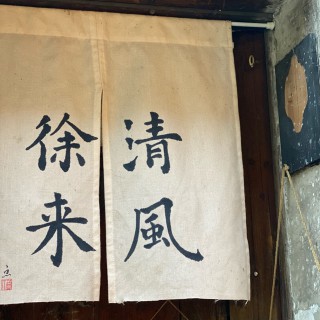 清風
徐来